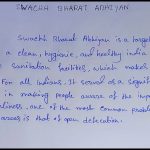 SWACHH BHARAT ABHIYAN
Swachh Bharat Abhiyan is a large
a clean, hygienic, and healthy india
sanitation facilities, which makes
For all Indians. It served as a signifi
in making people aware of the impo
liness. one of the most common proble
areas is that of open defecation.